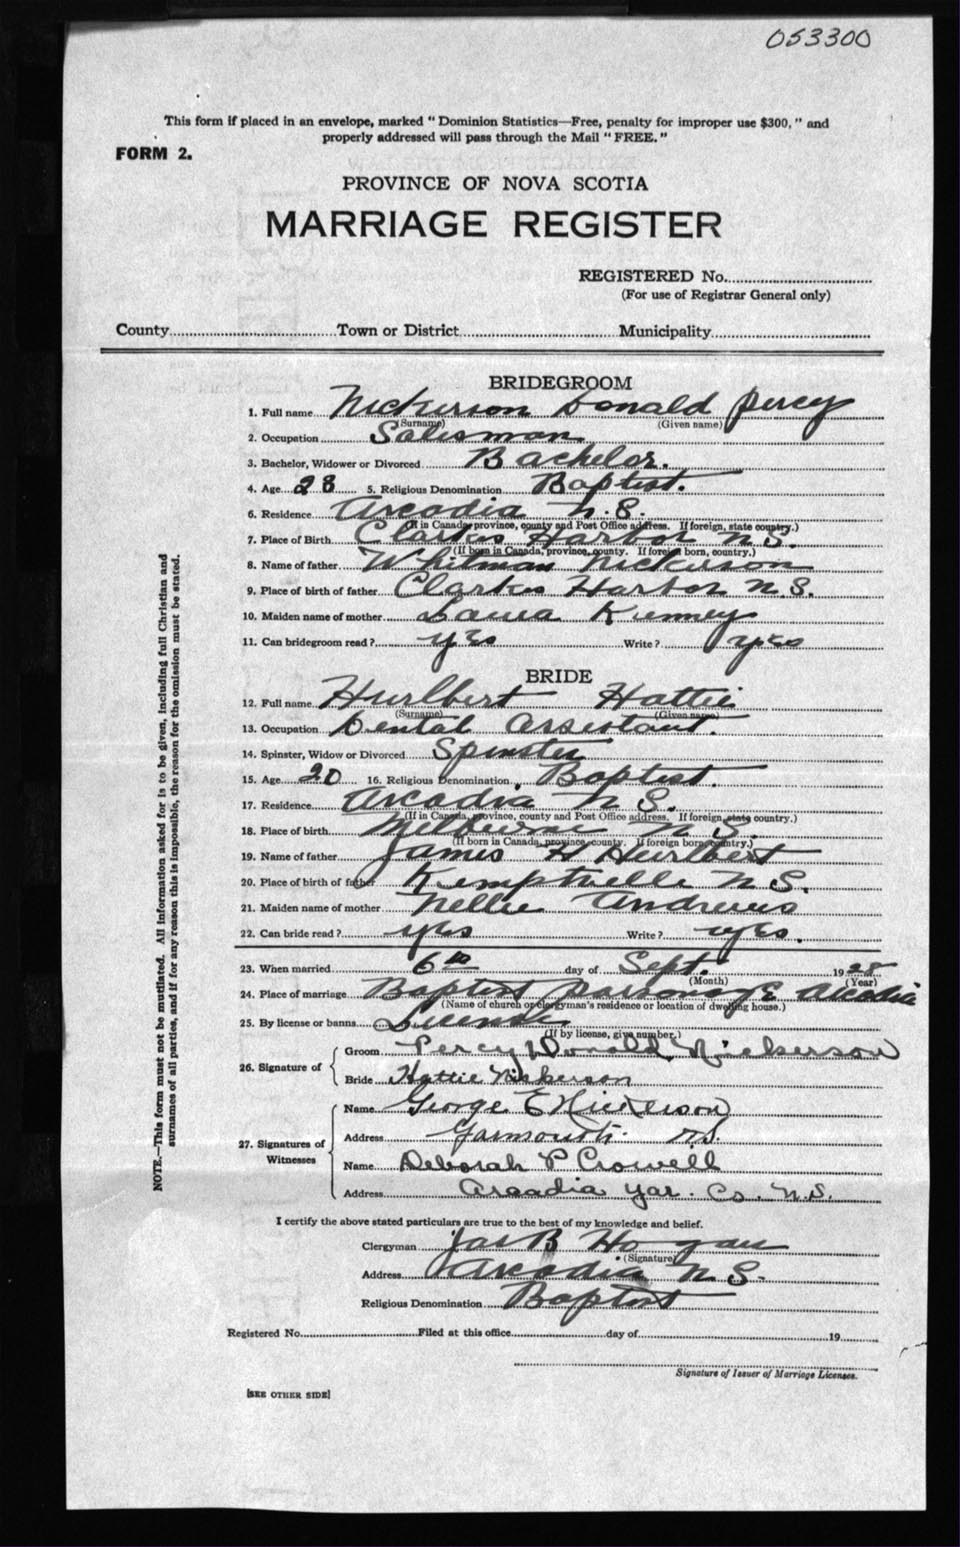 053300
This form if placed in an envelope, marked "Dominion Statistics—Free, penalty for improper use $300," and
properly addressed will pass through the Mail "FREE."
FORM 2.
PROVINCE OF NOVA SCOTIA
MARRIAGE REGISTER
REGISTERED No.
(For use of Registrar General only)
County Town or District Municipality
BRIDEGROOM
1. Full name Nickerson Donald Percy
(Surname) (Given name)
2. Occupation Salesman
3. Bachelor, Widower or Divorced Bachelor.
4. Age 28 5. Religious Denomination Baptist.
6. Residence Arcadia N.S.
(If in Canada, province, county and Post Office address. If foreign, state country.)
7. Place of Birth Clarkes Harbor N S.
(If born in Canada, province, county. If foreign born, country.)
8. Name of father Whitman Nickerson
9. Place of birth of father Clarkes Harbor N.S.
10. Maiden name of mother Laura Kenney
11. Can bridegroom read? yes Write? yes
BRIDE
12. Full name Hurlbert Hattie
(Surname) (Given name)
13. Occupation Dental Assistant.
14. Spinster, Widow or Divorced Spinster
15. Age 20 16. Religious Denomination Baptist.
17. Residence Arcadia N S.
(If in Canada, province, county and Post Office address. If foreign, state country.)
18. Place of birth Melbourne N S.
(If born in Canada, province, county. If foreign born, country.)
19. Name of father James H Hurlbert
20. Place of birth of father Kemptville N.S.
21. Maiden name of mother Nellie Andrews
22. Can bride read? yes Write? yes.
23. When married 6th day of Sept. 1928
(Month) (Year)
24. Place of marriage Baptist Parsonage Arcadia
(Name of church or clergyman's residence or location of dwelling house.)
25. By license or banns License
(If by license, give number.)
26. Signature of Groom Percy Donald Nickerson
Bride Hattie Nickerson
27. Signatures of Witnesses Name George E Nickerson
Address Yarmouth N.S.
Name Deborah P Crowell
Address Arcadia Yar. Co. N.S.
I certify the above stated particulars are true to the best of my knowledge and belief.
Clergyman Jas B Hogan
(Signature)
Address Arcadia N S.
Religious Denomination Baptist
Registered No. Filed at this office day of 19
Signature of Issuer of Marriage Licenses.
[SEE OTHER SIDE]
NOTE.—This form must not be mutilated. All information asked for is to be given, including full Christian and
surnames of all parties, and if for any reason this is impossible, the reason for the omission must be stated.